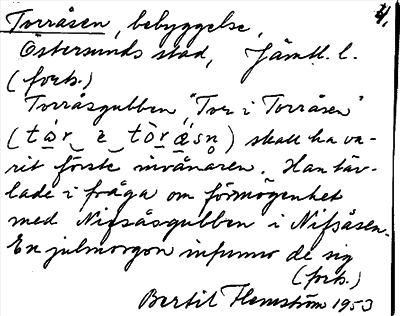 Torråsen, bebyggelse, 4.
Östersunds stad, Jämtl. l.
(forts.)
Torråsgubben, "Tor i Torråsen"
skall ha va-
rit förste invånaren. Han täv-
lade i fråga om förmögenhet
med Nifsåsgubben i Nifsåsen.
En julmorgon infunno de sig
(forts.)
Bertil Flemström 1953